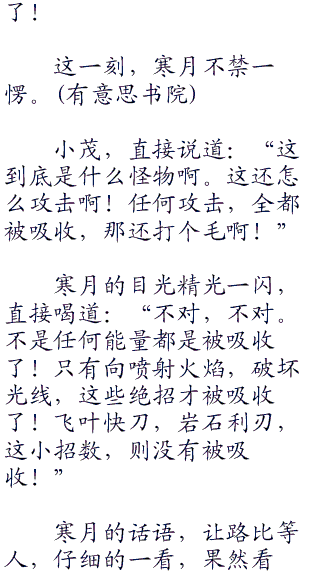 了！
这一刻，寒月不禁一
愣。(有意思书院)
小茂，直接说道：“这
到底是什么怪物啊。这还怎
么攻击啊！任何攻击，全都
被吸收，那还打个毛啊！”
寒月的目光精光一闪，
直接喝道：“不对，不对。
不是任何能量都是被吸收
了！只有向喷射火焰，破坏
光线，这些绝招才被吸收
了！飞叶快刀，岩石利刃，
这小招数，则没有被吸
收！”
寒月的话语，让路比等
人，仔细的一看，果然看